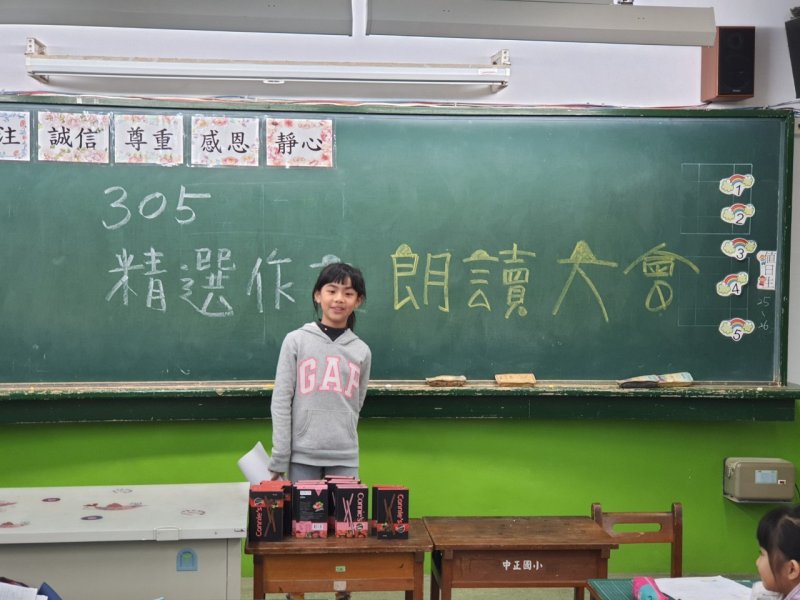 注 誠信 尊重 感恩 靜心
305
精選作 朗讀大會
1
2
3
4
5
值日生
25
26
GAP
Connie's
Connie's
Connie's
中正國小